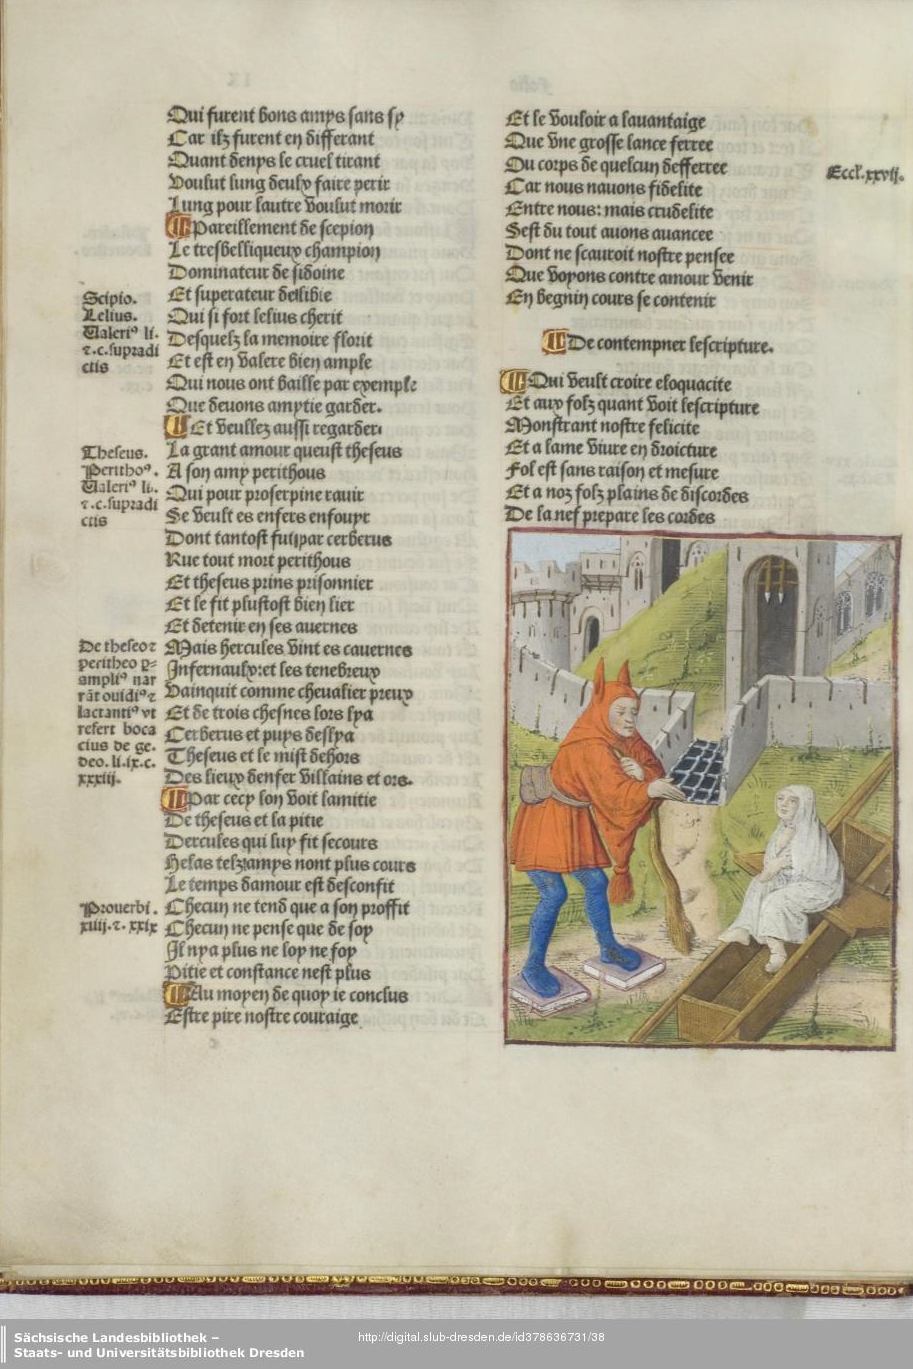 Qui furent bons amys sans sy
Car ilz furent en differant
Quant denys le cruel tirant
Voulut lung deulx faire perir
Lung pour lautre voulut morir
Pareillement de scepion
Le tresbelliqueux champion
Dominateur de sidoine
Et superateur de libie
Qui si fort lelius cherit
Desquelz la memoire florit
Et est en valere bien ample
Qui nous ont baille par exemple
Que devons amytie garder.
Et veullez aussi regarder
La grant amour queust theseus
A son amy perithous
Qui pour proserpine ravir
Se veult es enfers enfouyr
Dont tantost fut par cerberus
Rue tout mort perithous
Et theseus prins prisonnier
Et le fit plustost bien lier
Et detenir en ses avernes
Mais hercules vint es cavernes
Infernaulx: et les tenebreux
Vainquit comme chevalier preux
Et de trois chesnes lors lya
Cerberus et puys deslya
Theseus et le mist dehors
Des lieux denfer villains et ors.
Par cecy lon voit lamitie
De theseus et la pitie
Dercules qui luy fit secours
Helas telz amys nont plus cours
Le temps damour est desconfit
Checun ne tend que a son proffit
Checun ne pense que de soy
Il nya plus ne loy ne foy
Pitie et constance nest plus
Au moyen de quoy ie conclus
Estre pire nostre couraige
Scipio.
Lelius.
Valeriꝰ li.
⁊.c.supradi
ctis
Theseus.
Perithoꝰ.
Valeriꝰ li.
⁊.c.supradi
ctis
De theseo ⁊
peritheo p=
ampliꝰ nar
rāt ouidiꝰ ⁊
lactantiꝰ vt
refert boca
cius de ge.
deo. li.ix.c.
xxxiij.
Prouerbi.
xiiij.⁊. xxix
Et le vouloir a lavantaige
Que vne grosse lance ferree
Du corps de quelcun defferree
Car nous navons fidelite
Entre nous: mais crudelite
Sest du tout avons avancee
Dont ne scauroit nostre pensee
Que voyons contre amour venir
En begnin cours se contenir
Eccl.xxvij.
De contempner lescripture.
Qui veult croire eloquacite
Et aux folz quant voit lescripture
Monstrant nostre felicite
Et a lame vivre en droicture
Fol est sans raison et mesure
Et a noz folz plains de discordes
De la nef prepare les cordes
Sächsische Landesbibliothek –
Staats- und Universitätsbibliothek Dresden
http://digital.slub-dresden.de/id378636731/38